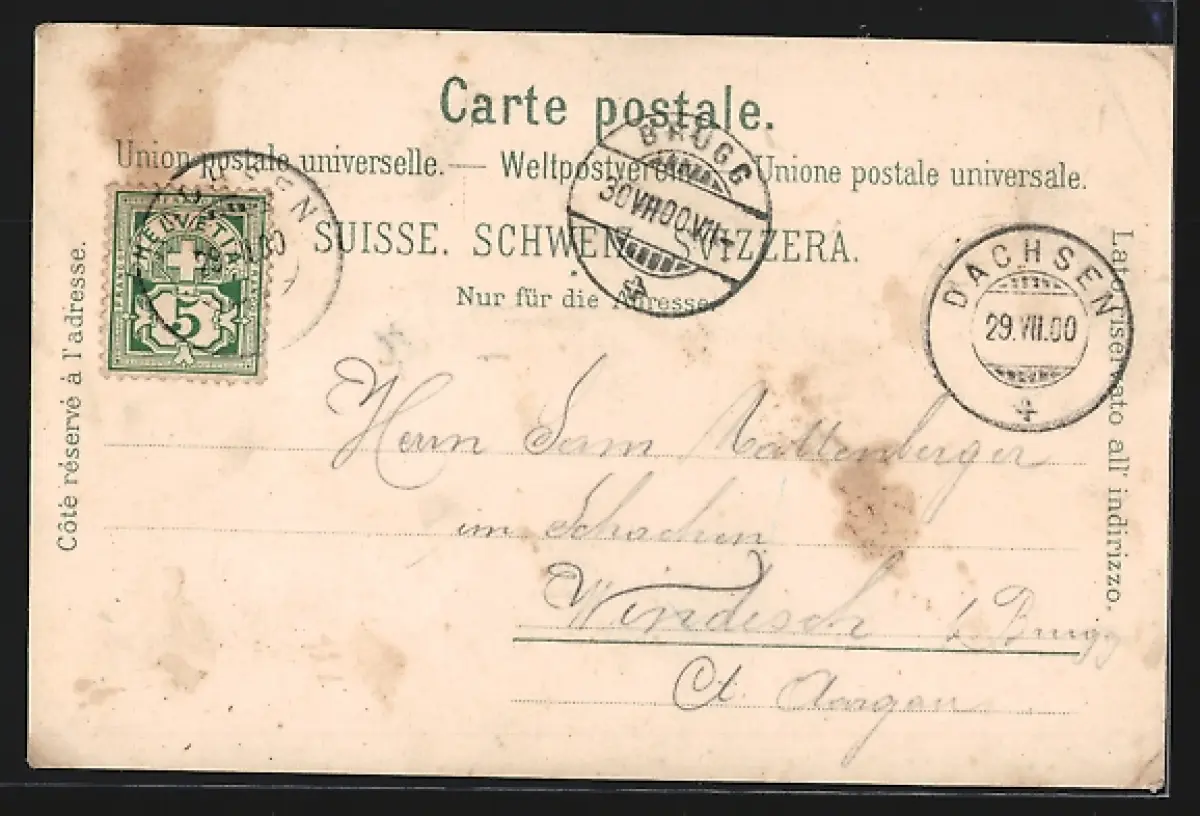 Carte postale.
Union postale universelle. — Weltpostverein — Unione postale universale.
SUISSE. SCHWEIZ. SVIZZERA.
Nur für die Adresse.
Côté réservé à l'adresse.
Lato riservato all' indirizzo.
HELVETIA
FRANCO
5
BRUGG
30.VII.00.VII
DACHSEN
29.VII.00
Herrn Sam Rattenberger
im Schachen
Windisch b/ Brugg
Ct. Aargau